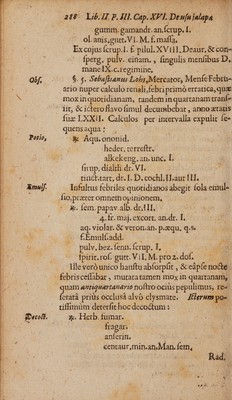 288 Lib. II. P. III. Cap. XVI. De usu jalapæ
gumm. gamandr. an. scrup. I.
ol. anis, gutt. VI. M. f. massa.
Ex cujus scrup. I. f. pilul. XVIII. Deaur. & con-
sperg. pulv. einam. , singulis mensibus D.
mane IX. c. regimine.
Obs. §. 5. Sebastianus Lohs, Mercator, Mense Februa-
ario nuper calculo renali, febri primò erratica, quæ
mox in quotidianam, tandem in quartanam transi-
it, & ictero flavo simul decumbebat, anno ætatis
suæ LXXII. Calculos per intervalla expulit se-
quens aqua :
Potio, ℞. Aqu. ononid.
heder. terrestr.
alkekeng. an. unc. I.
sirup. dialth. dr. VI.
tinct. tart. dr. I. D. cochl. II. aut III.
Emuls. Insultus febriles quotidianos abegit sola emul-
sio, præter omnem opinionem.
℞. sem. papav. alb. dr. III.
4. fr. maj. excort. an. dr. I.
aq. violar. & veron. an. p. æqu. q. s.
f. Emuls. add.
pulv. bez. senn. scrup. I.
spirit. ros. gutt. VII. M. pro 2. dos.
Ille verò unico haustu absorpsit, & eâpse nocte
febris cessabat, mutata tamen mox in quartanam,
quam antiquartanario nostro ocius pepulimus, re-
serata prius occlusâ alvo clysmate. Icterum po-
tissimùm detersit hoc decoctum :
Decoct. ℞. Herb. fumar.
fragar.
anserin.
centaur. min. an. Man. sem.
Rad.